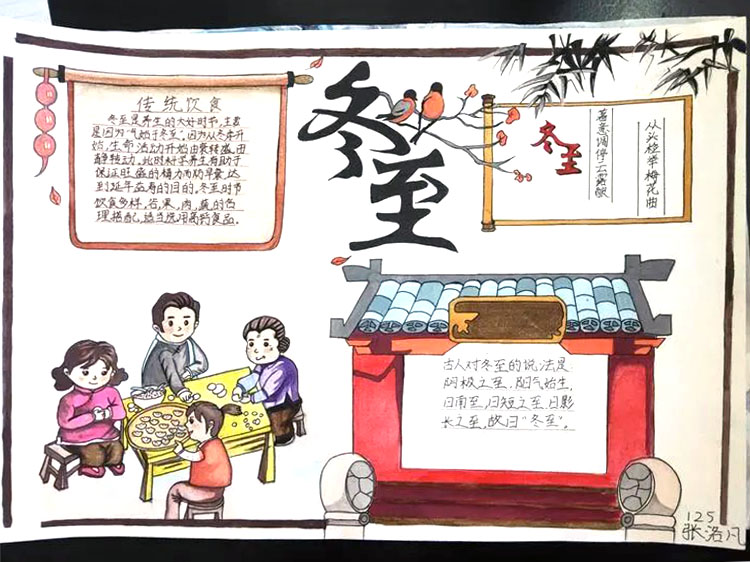 传统饮食
冬至是养生的大好时节,主要
是因为“气始于冬至”。因为从冬季开
始,生命活动开始由衰转盛,由
静转动。此时科学养生有助于
保证旺盛的精力而防早衰,达
到延年益寿的目的。冬至时节
饮食多样,谷、果、肉、蔬的合
理搭配,适当选用高钙食品。
冬至
冬至
从头检举梅花曲
著意调停云露酿
古人对冬至的说法是:
阴极之至,阳气始生,
日南至,日短之至,日影
长之至,故曰“冬至”。
125
张洛凡